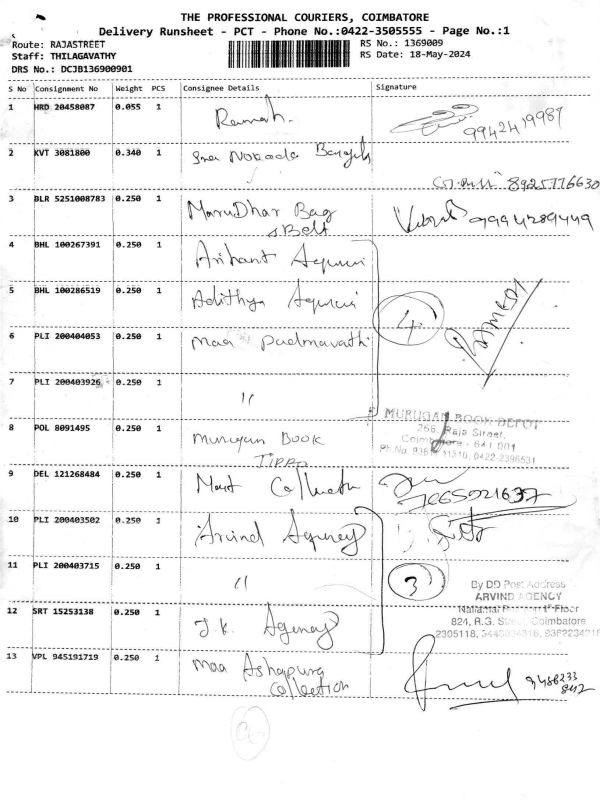 THE PROFESSIONAL COURIERS, COIMBATORE
Delivery Runsheet - PCT - Phone No.:0422-3505555 - Page No.:1
Route: RAJASTREET
RS No.: 1369009
Staff: THILAGAVATHY
RS Date: 18-May-2024
DRS No.: DCJB136900901
S No Consignment No Weight PCS Consignee Details Signature
1 HRD 20458087 0.055 1 Ramesh. 9942419987
2 KVT 3081800 0.340 1 Sree Nokoda Bangls
8925776630
3 BLR 5251008783 0.250 1 MaruDhar Bag
& Belt
4 BHL 100267391 0.250 1 Arihant Agency
5 BHL 100286519 0.250 1 Adithya Agency 4
6 PLI 200404053 0.250 1 Maa Padmavathi
7 PLI 200403926 0.250 1 11
8 POL 8091495 0.250 1 Murugan Book
MURUGAN BOOK DEPOT
766, Raja Street,
Coimbatore - 641 001
0422-2396531
9 DEL 121268484 0.250 1
10 PLI 200403502 0.250 1 Arvind Agency
11 PLI 200403715 0.250 1 11 3
By DD Post Address
ARVIND AGENCY
824, R.G. Street, Coimbatore
12 SRT 15253138 0.250 1 J.K. Agency
13 VPL 945191719 0.250 1 Maa Ashapura
Collection
9486233
842